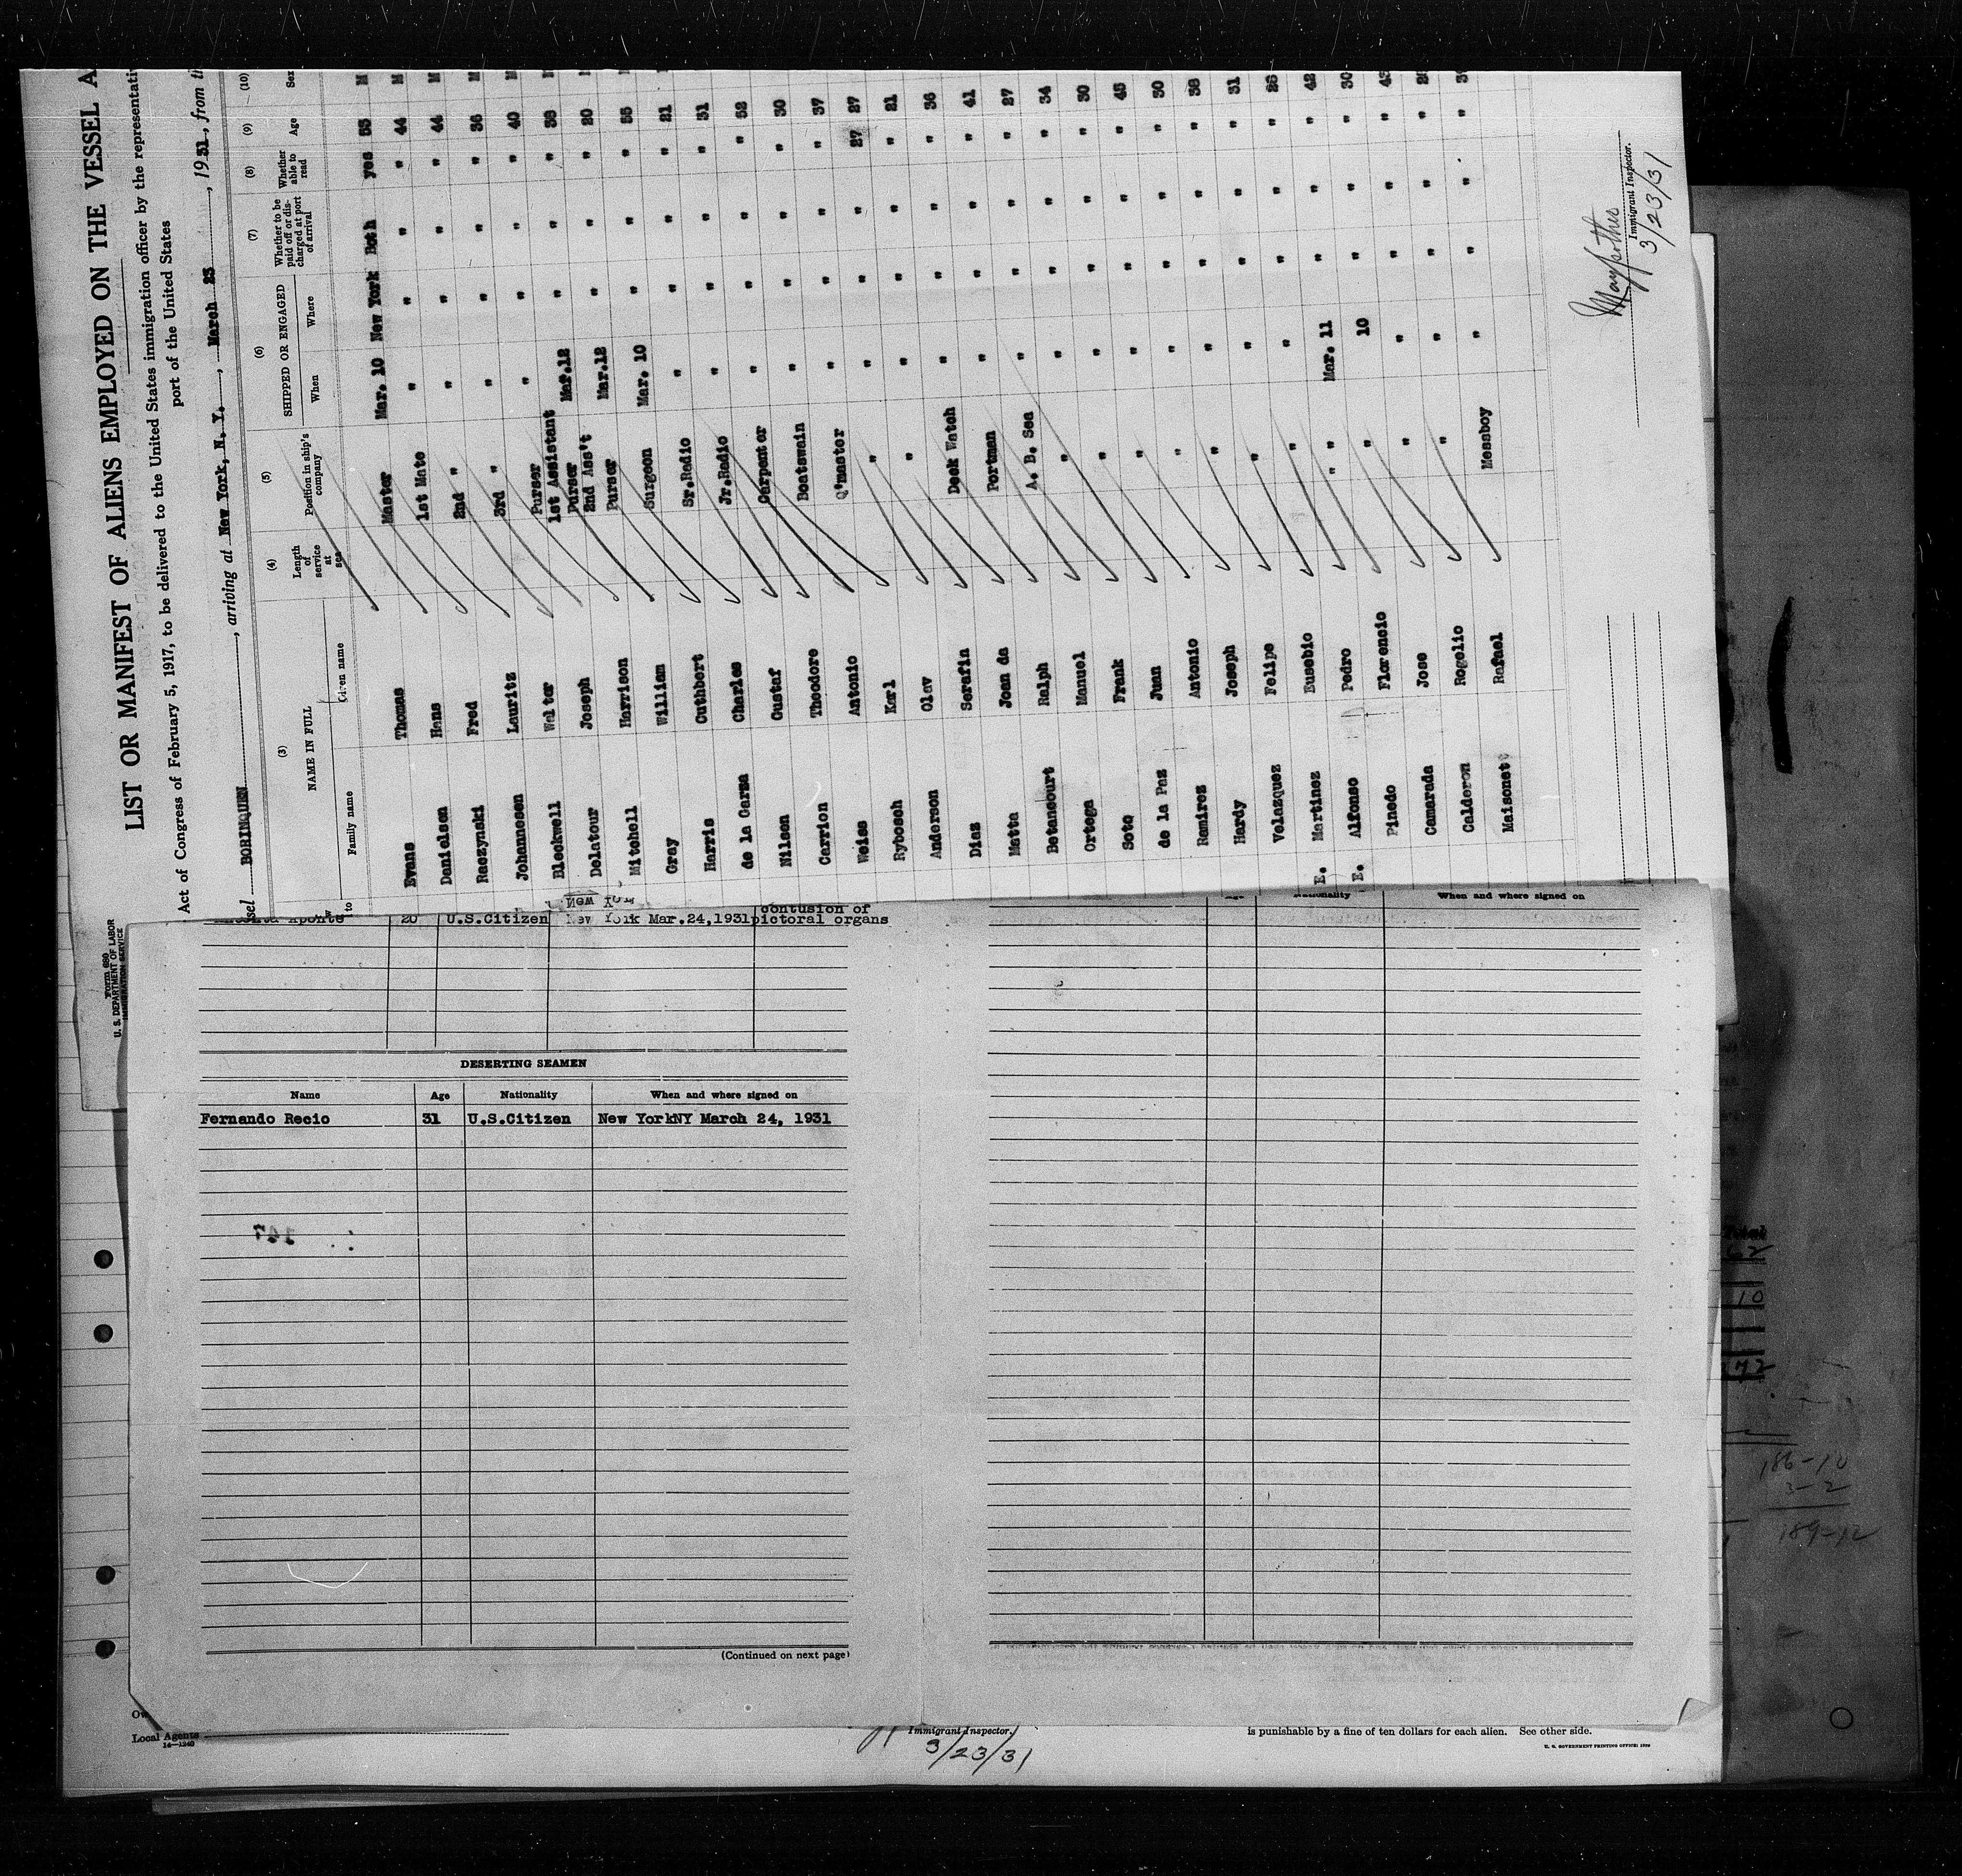 LIST OR MANIFEST OF ALIENS EMPLOYED ON THE VESSEL A
Act of Congress of February 5, 1917, to be delivered to the United States immigration officer by the representativ
port of the United States
sel BORINQUEN, arriving at New York, N. Y., March 23, 1931, from th
(3) (4) (5) (6) (7) (8) (9) (10)
NAME IN FULL
Family name Given name
Length of service at sea
Position in ship's company
SHIPPED OR ENGAGED
When Where
Whether to be paid off or discharged at port of arrival
Whether able to read
Age
Sex
Evans Thomas Master Mar. 10 New York Both yes 53 M
Danielsen Hans 1st Mate " " " " 44 M
Raczynski Fred 2nd " " " " " 44 M
Johannesen Lauritz 3rd " " " " " 36 M
Blackwell Walter Purser " " " " 40 M
Delatour Joseph 1st Assistant Purser Mar.12 " " " 38
Mitchell Harrison 2nd Ass't Purser Mar.12 " " " 20
Gray William Surgeon Mar. 10 " " " 55
Harris Cuthbert Sr.Radio " " " " 21
de la Garza Charles Jr.Radio " " " " 31
Nilsen Gustaf Carpenter " " " " 52
Carrion Theodore Boatswain " " " " 30
Weiss Antonio Q'master " " " " 37
Rybosch Karl " " " " 27 27
Anderson Olav " " " " " 21
Diaz Serafin Deck Watch " " " " 36
Matta Joan da Portman " " " " 41
Betancourt Ralph A. B. Sea " " " " 27
Ortega Manuel " " " " " 34
Soto Frank " " " " " 30
de la Paz Juan " " " " " 45
Ramirez Antonio " " " " " 30
Hardy Joseph " " " " " 38
Velazquez Felipe " " " " " 31
E. Martinez Eusebio " " " " " 26
E. Alfonso Pedro " Mar. 11 " " " 42
Pinedo Florencio " 10 " " " 30
Camarada Jose " " " " " 43
Calderon Rogelio " " " " "
Maisonet Rafael Messboy " " " "
Immigrant Inspector.
3/23/31
Form 680
U. S. DEPARTMENT OF LABOR
IMMIGRATION SERVICE
Aponte 20 U.S.Citizen New York Mar.24,1931 contusion of
pictoral organs
DESERTING SEAMEN
Name Age Nationality When and where signed on
Fernando Recio 31 U.S.Citizen New YorkNY March 24, 1931
(Continued on next page)
Age Nationality When and where signed on
Total
10
186-10
3-2
189-12
Local Agents
14—1240
Immigrant Inspector.
3/23/31
is punishable by a fine of ten dollars for each alien. See other side.
U. S. GOVERNMENT PRINTING OFFICE: 1930